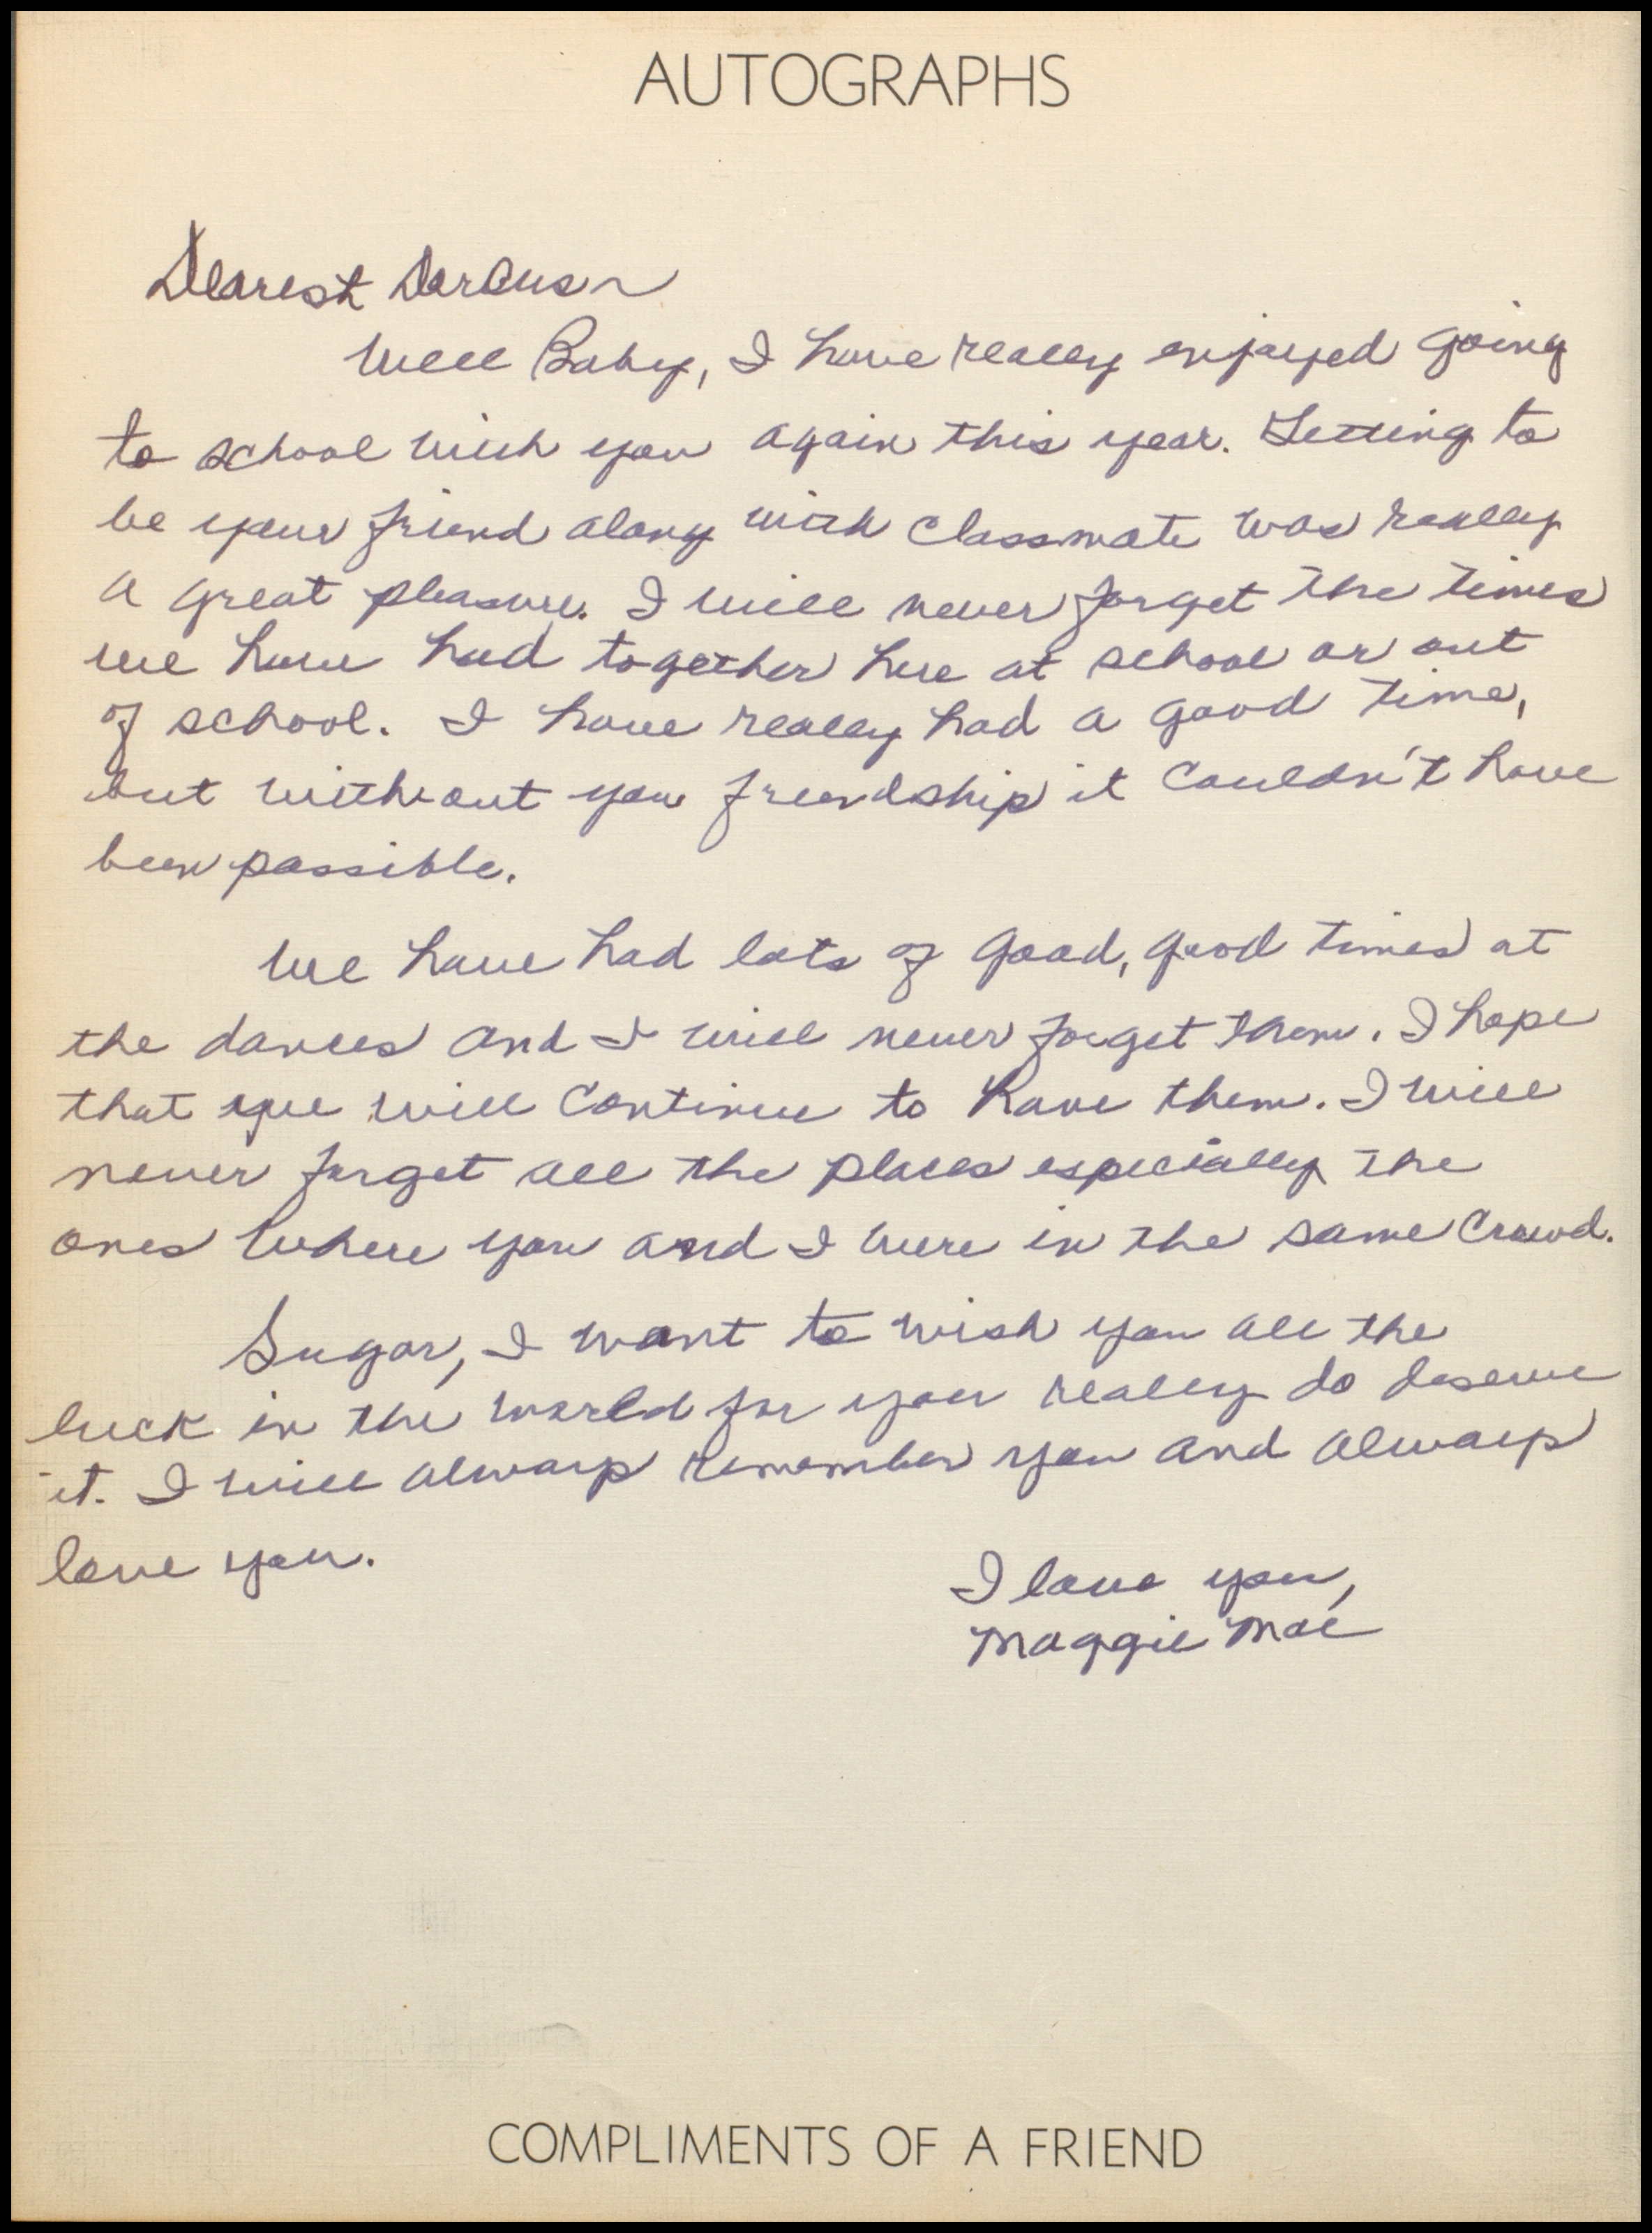 AUTOGRAPHS
Dearest Darcus
Well Baby, I have really enjoyed going
to school with you again this year. Getting to
be your friend along with classmate was really
a great pleasure. I will never forget the times
we have had together here at school or out
of school. I have really had a good time,
but without you friendship it couldn't have
been possible.
We have had lots of good, good times at
the dances and I will never forget them. I hope
that we will continue to have them. I will
never forget all the places especially the
ones where you and I were in the same crowd.
Sugar, I want to wish you all the
luck in the world for you really do deserve
it. I will always remember you and always
love you.
I love you,
Maggie Mae
COMPLIMENTS OF A FRIEND